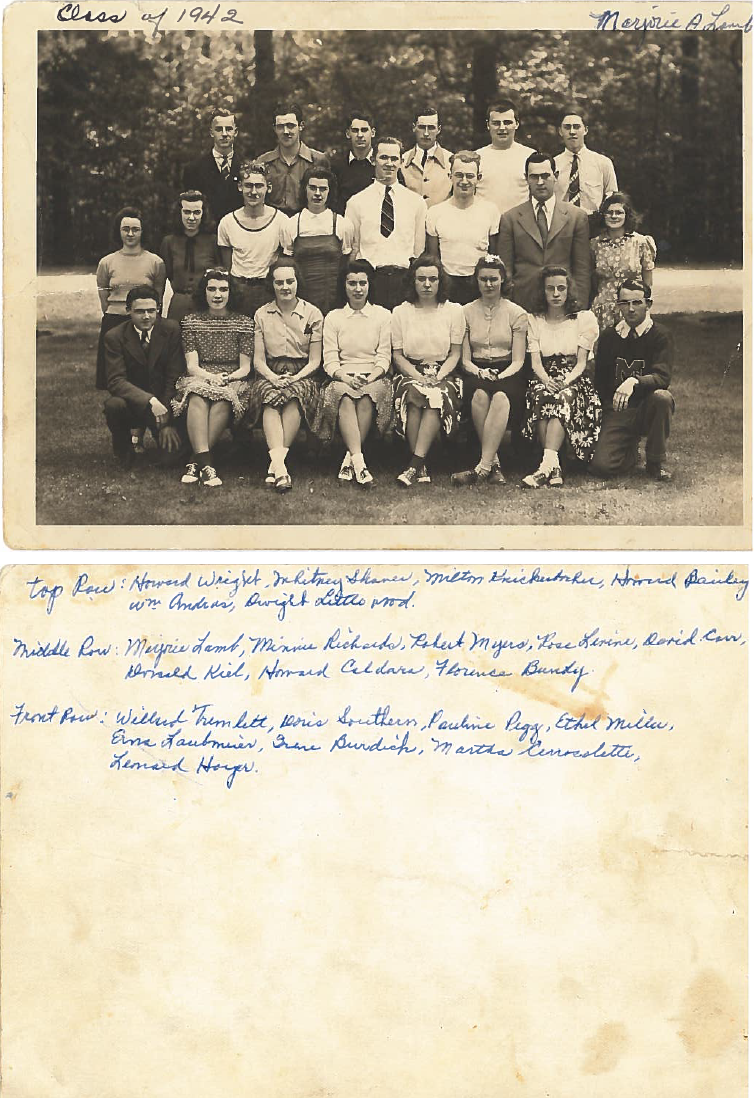 Class of 1942
Marjorie A. Lamb
Top Row: Howard Wright, Whitney Shaver, Milton Knickerbocker, Howard Bailey
Wm Andros, Dwight Littlewood.
Middle Row: Marjorie Lamb, Minnie Richards, Robert Myers, Rose Levine, David Carr,
Donald Kiel, Howard Caldara, Florence Bundy.
Front Row: Willard Trumlett, Doris Southern, Pauline Pegg, Ethel Miller,
Erna Laubmeier, Irene Burdick, Martha
Leonard
M